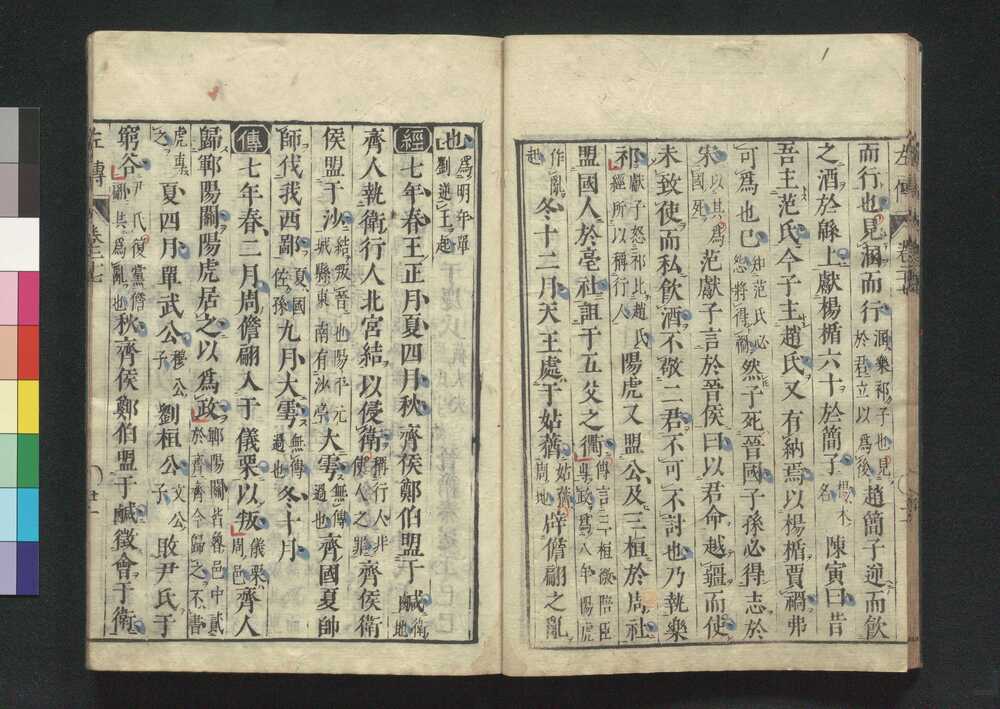 左傳 卷二十七
而行也見溷而行溷樂祁子也見於君立以爲後趙簡子逆而飲
之酒於緜上獻楊楯六十於簡子楊木名陳寅曰昔
吾主范氏今子主趙氏又有納焉以楊楯賈禍弗
可爲也已知范氏必怨將得禍然子死晉國子孫必得志於
宋以其爲國死范獻子言於晉侯曰以君命越疆而使
未致使而私飲酒不敬二君不可不討也乃執樂
祁獻子怒祁比趙氏經所以稱行人陽虎又盟公及三桓於周社
盟國人於亳社詛于五父之衢傳言三桓微陪臣專政爲八年陽虎
作亂起冬十二月天王處于姑蕕姑蕕周地辟儋翩之亂
也爲明年單劉逆王起
經七年春王正月夏四月秋齊侯鄭伯盟于鹹衛地
齊人執衛行人北宮結以侵衛稱行人非使人之罪齊侯衛
侯盟于沙結叛晉也陽平元城縣東南有沙亭大雩無傳過也齊國夏帥
師伐我西鄙夏國佐孫九月大雩無傳過也冬十月
傳七年春二月周儋翩入于儀栗以叛儀栗周邑齊人
歸鄆陽關陽虎居之以爲政鄆陽關皆魯邑中貳於齊齊今歸之不書
虎專之夏四月單武公穆公子劉桓公文公子敗尹氏于
窮谷尹氏復黨儋翩共爲亂也秋齊侯鄭伯盟于鹹徵會于衛
左傳 卷二十七